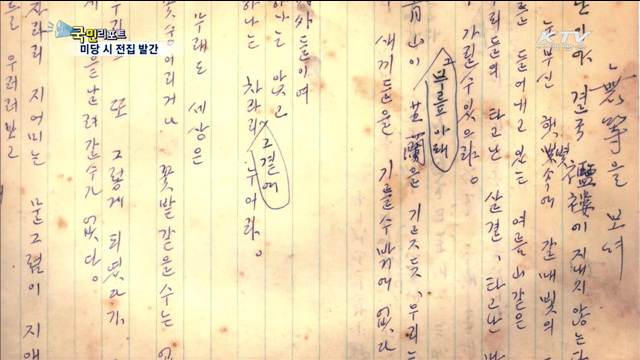 국민리포트
미당 시 전집 발간
KTV
無等을 보며
결국 襤褸에 지내지 않는다
눈부신 햇빛속에 갈매빛의
드러내고 있는 여름山같은
우리들의 타고난 살결, 타고난 마
가릴수있으랴
靑山이 그 무릎아래 芝蘭을 기르듯, 우리는
새끼들을 기를수밖에 없다
들이여
하나는 앉고
하나는 차라리 그곁에 누어라.
무래도 세상은
꽃숭어리거나 꽃밭같을수는 없
또 그렇게 되였다기
을 날려갈수가 없다.
지어미는 물그럼이 지애
를 우러러보고